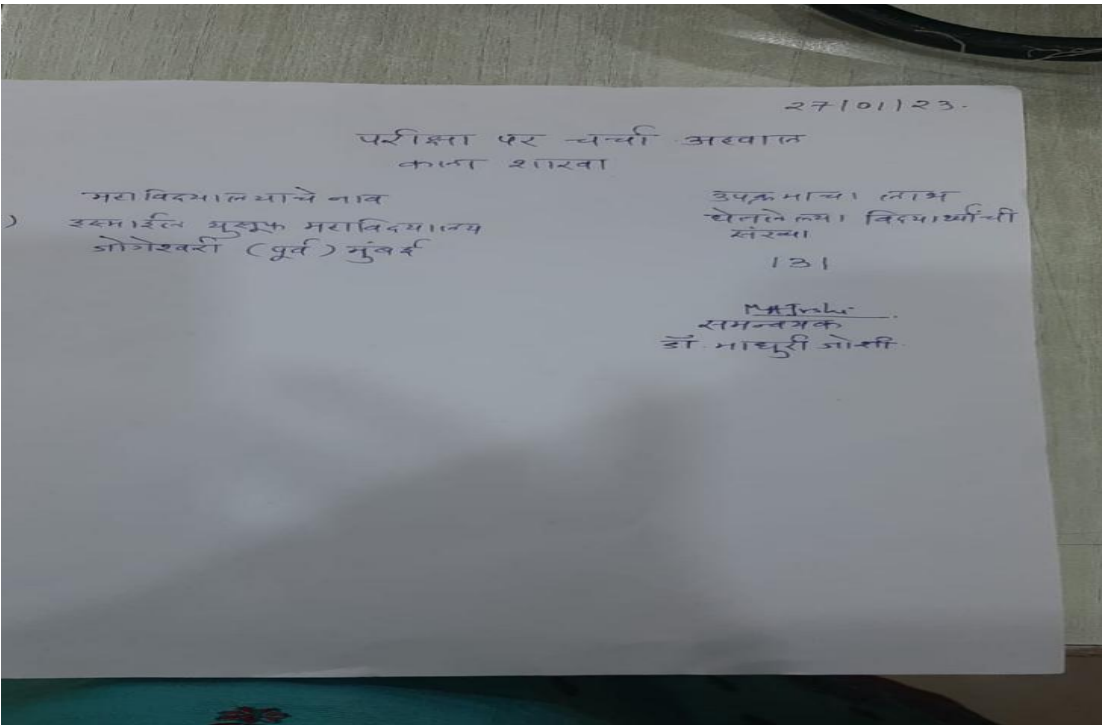 27/01/23.
परीक्षा पर चर्चा अहवाल
कला शाखा
महाविदयालयाचे नाव
) इस्माईल युसूफ महाविदयालय
जोगेश्वरी (पूर्व) मुंबई
उपक्रमाचा लाभ
घेतलेल्या विदयार्थ्यांची
संख्या
131
समन्वयक
डॉ. माधुरी जोशी.